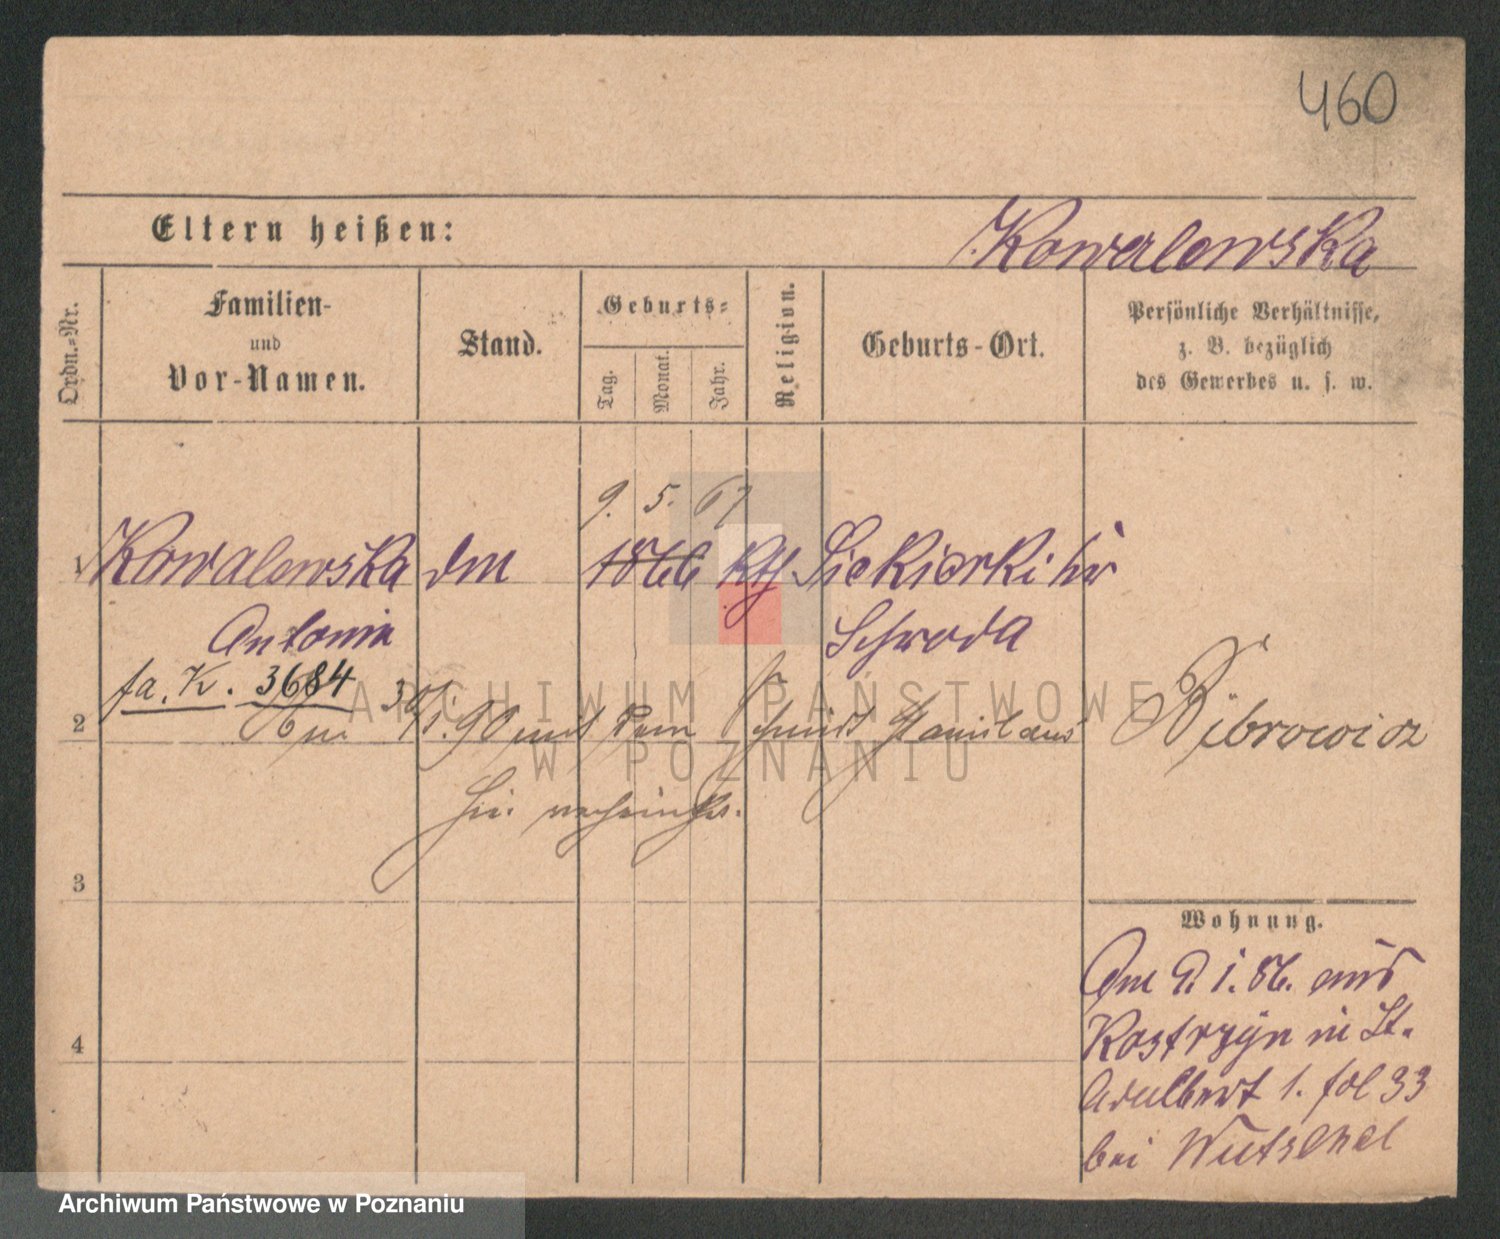 460
Eltern heißen:
Kowalewska
Ordn.-Nr.
Familien-
und
Vor-Namen.
Stand.
Geburts-
Tag.
Monat.
Jahr.
Religion.
Geburts-Ort.
Persönliche Verhältnisse,
z. B. bezüglich
des Gewerbes u. s. w.
9. 5. 67
1 Kowalewska dm 1866 kth. Siekierki kr
Antonia Schroda
fa. K. 3684
2 Am 30/1. 90 mit dem Schmidt Stanislaus Bibrowicz
hier verheirathet.
3
Wohnung.
Am 9. 1. 86. aus
Kostrzyn in St.
4
Adalbert 1. fol 33
bei Wutschel
ARCHIWUM PAŃSTWOWE
W POZNANIU
Archiwum Państwowe w Poznaniu